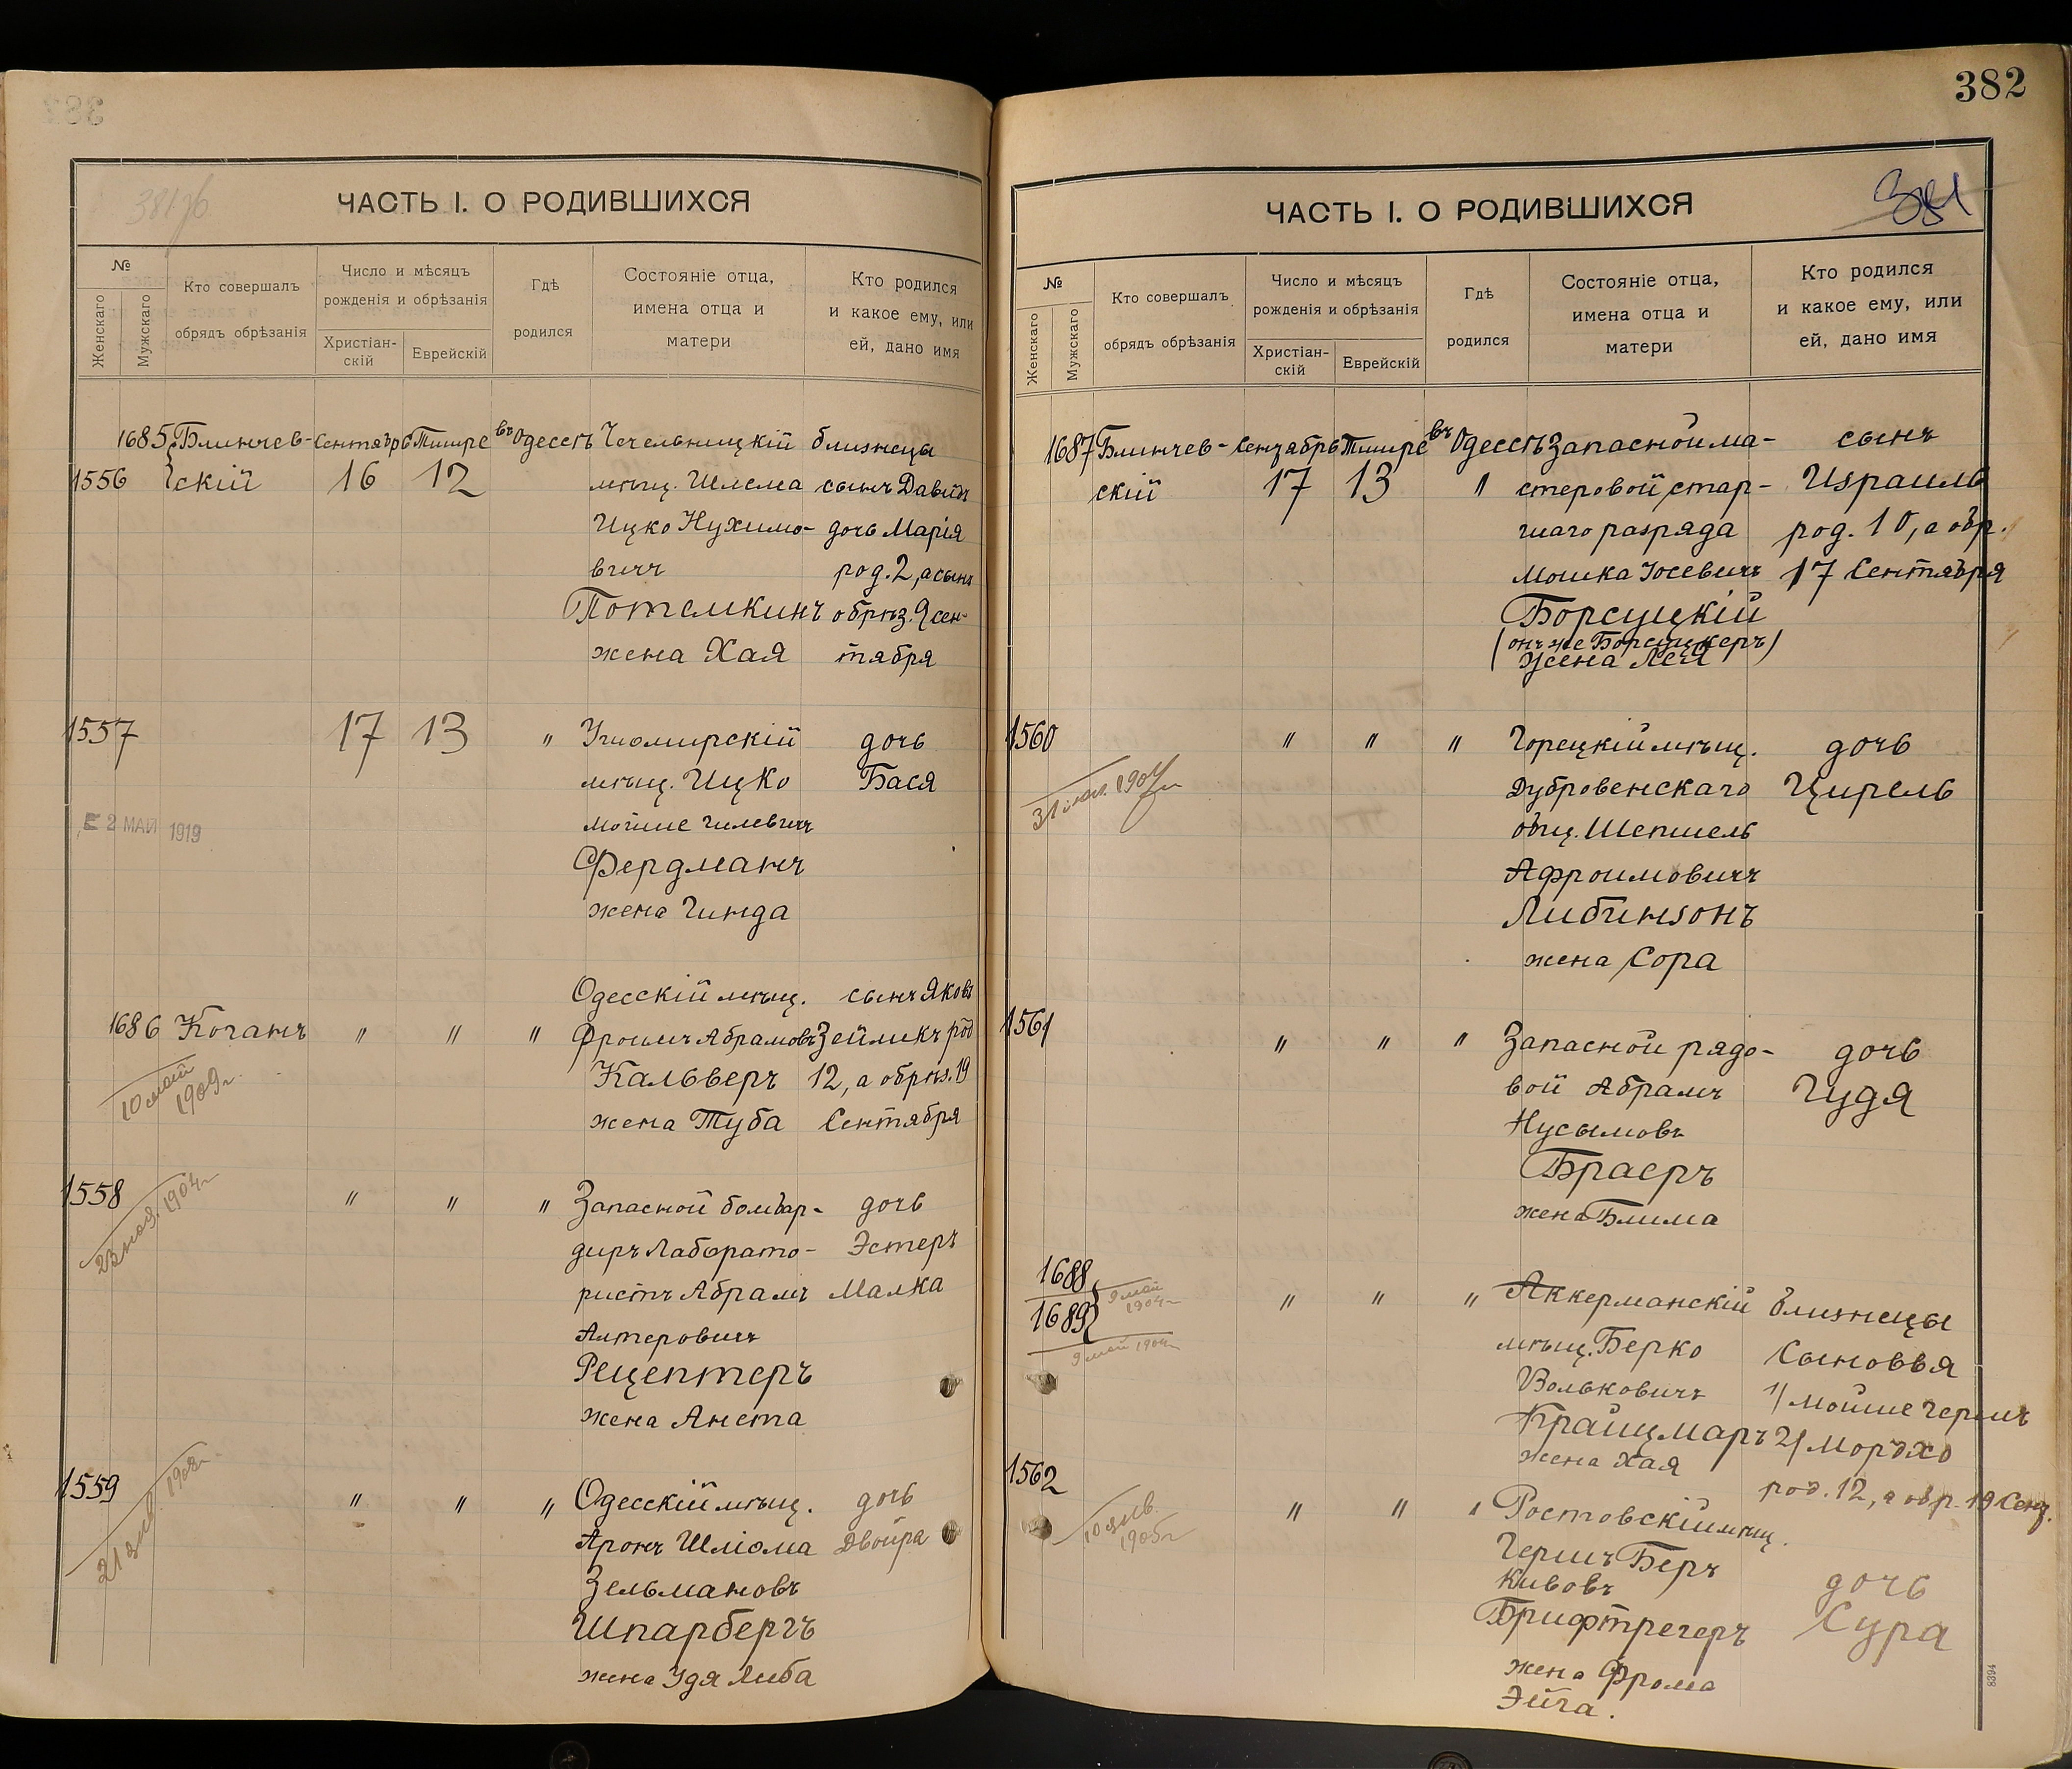 382
ЧАСТЬ I. О РОДИВШИХСЯ
№
Женскаго
Мужскаго
Кто совершалъ
обрядъ обрѣзанія
Число и мѣсяцъ
рожденія и обрѣзанія
Христіан-
скій
Еврейскій
Гдѣ
родился
Состояніе отца,
имена отца и
матери
Кто родился
и какое ему, или
ей, дано имя
1685 Блинчев- Сентябрь Тишре въ Одессѣ Чечельницкій близнецы
1556 скій 16 12 мѣщ. Шлема сынъ Давидъ
Ицко Нухимо- дочь Марія
вичъ род. 2, а сынъ
Потемкинъ обрѣз. 9 сен-
жена Хая тября
1557 17 13 " Ушомирскій дочь
мѣщ. Ицко Бася
Мойше Гилевичъ
2 МАЙ 1919
Фердманъ
жена Гинда
Одесскій мѣщ. сынъ Яковъ
1686 Коганъ " " " Фроимъ Абрамовъ Зейликъ род
Кальверъ 12, а обрѣз. 19
10 май
1909г.
жена Туба Сентября
1558 " " " Запасной бомбар- дочь
23 ноя. 1904г
диръ Лаборато- Эстеръ
ристъ Абрамъ Малка
Алтеровичъ
Рецептеръ
жена Анета
1559 " " " Одесскій мѣщ. дочь
Аронъ Шліома Двойра
Зельмановъ
Шпарбергъ
жена Удя Либа
ЧАСТЬ I. О РОДИВШИХСЯ
381
№
Женскаго
Мужскаго
Кто совершалъ
обрядъ обрѣзанія
Число и мѣсяцъ
рожденія и обрѣзанія
Христіан-
скій
Еврейскій
Гдѣ
родился
Состояніе отца,
имена отца и
матери
Кто родился
и какое ему, или
ей, дано имя
1687 Блинчев- Сентябрь Тишре въ Одессѣ Запасной ма- сынъ
скій 17 13 " стеровой стар- Израиль
шаго разряда род. 10, а обр.
Мошка Іосевичъ 17 Сентября
Борсуцкій
(онъ же Борсуцкеръ)
жена Лея
1560 " " " Горецкій мѣщ. дочь
Дубровенскаго Цирель
общ. Шепшель
Афроимовичъ
Либинзонъ
жена Сора
1561 " " " Запасной рядо- дочь
вой Абрамъ Гудя
Нусымовъ
Браеръ
жена Блима
1688
1689
9 май
1904г
9 май 1904г
" " " Аккерманскій близнецы
мѣщ. Берко Сыновья
Вольковичъ 1/ Мойше Гершъ
Крайцмаръ 2/ Мордхо
жена Хая род. 12, а обр. 19 Сент.
1562 " " " Ростовскій мѣщ.
1905г
Гершъ Беръ
Кивовъ дочь
Брифтрегеръ Сура
жена Фрома
Эйга.
8394